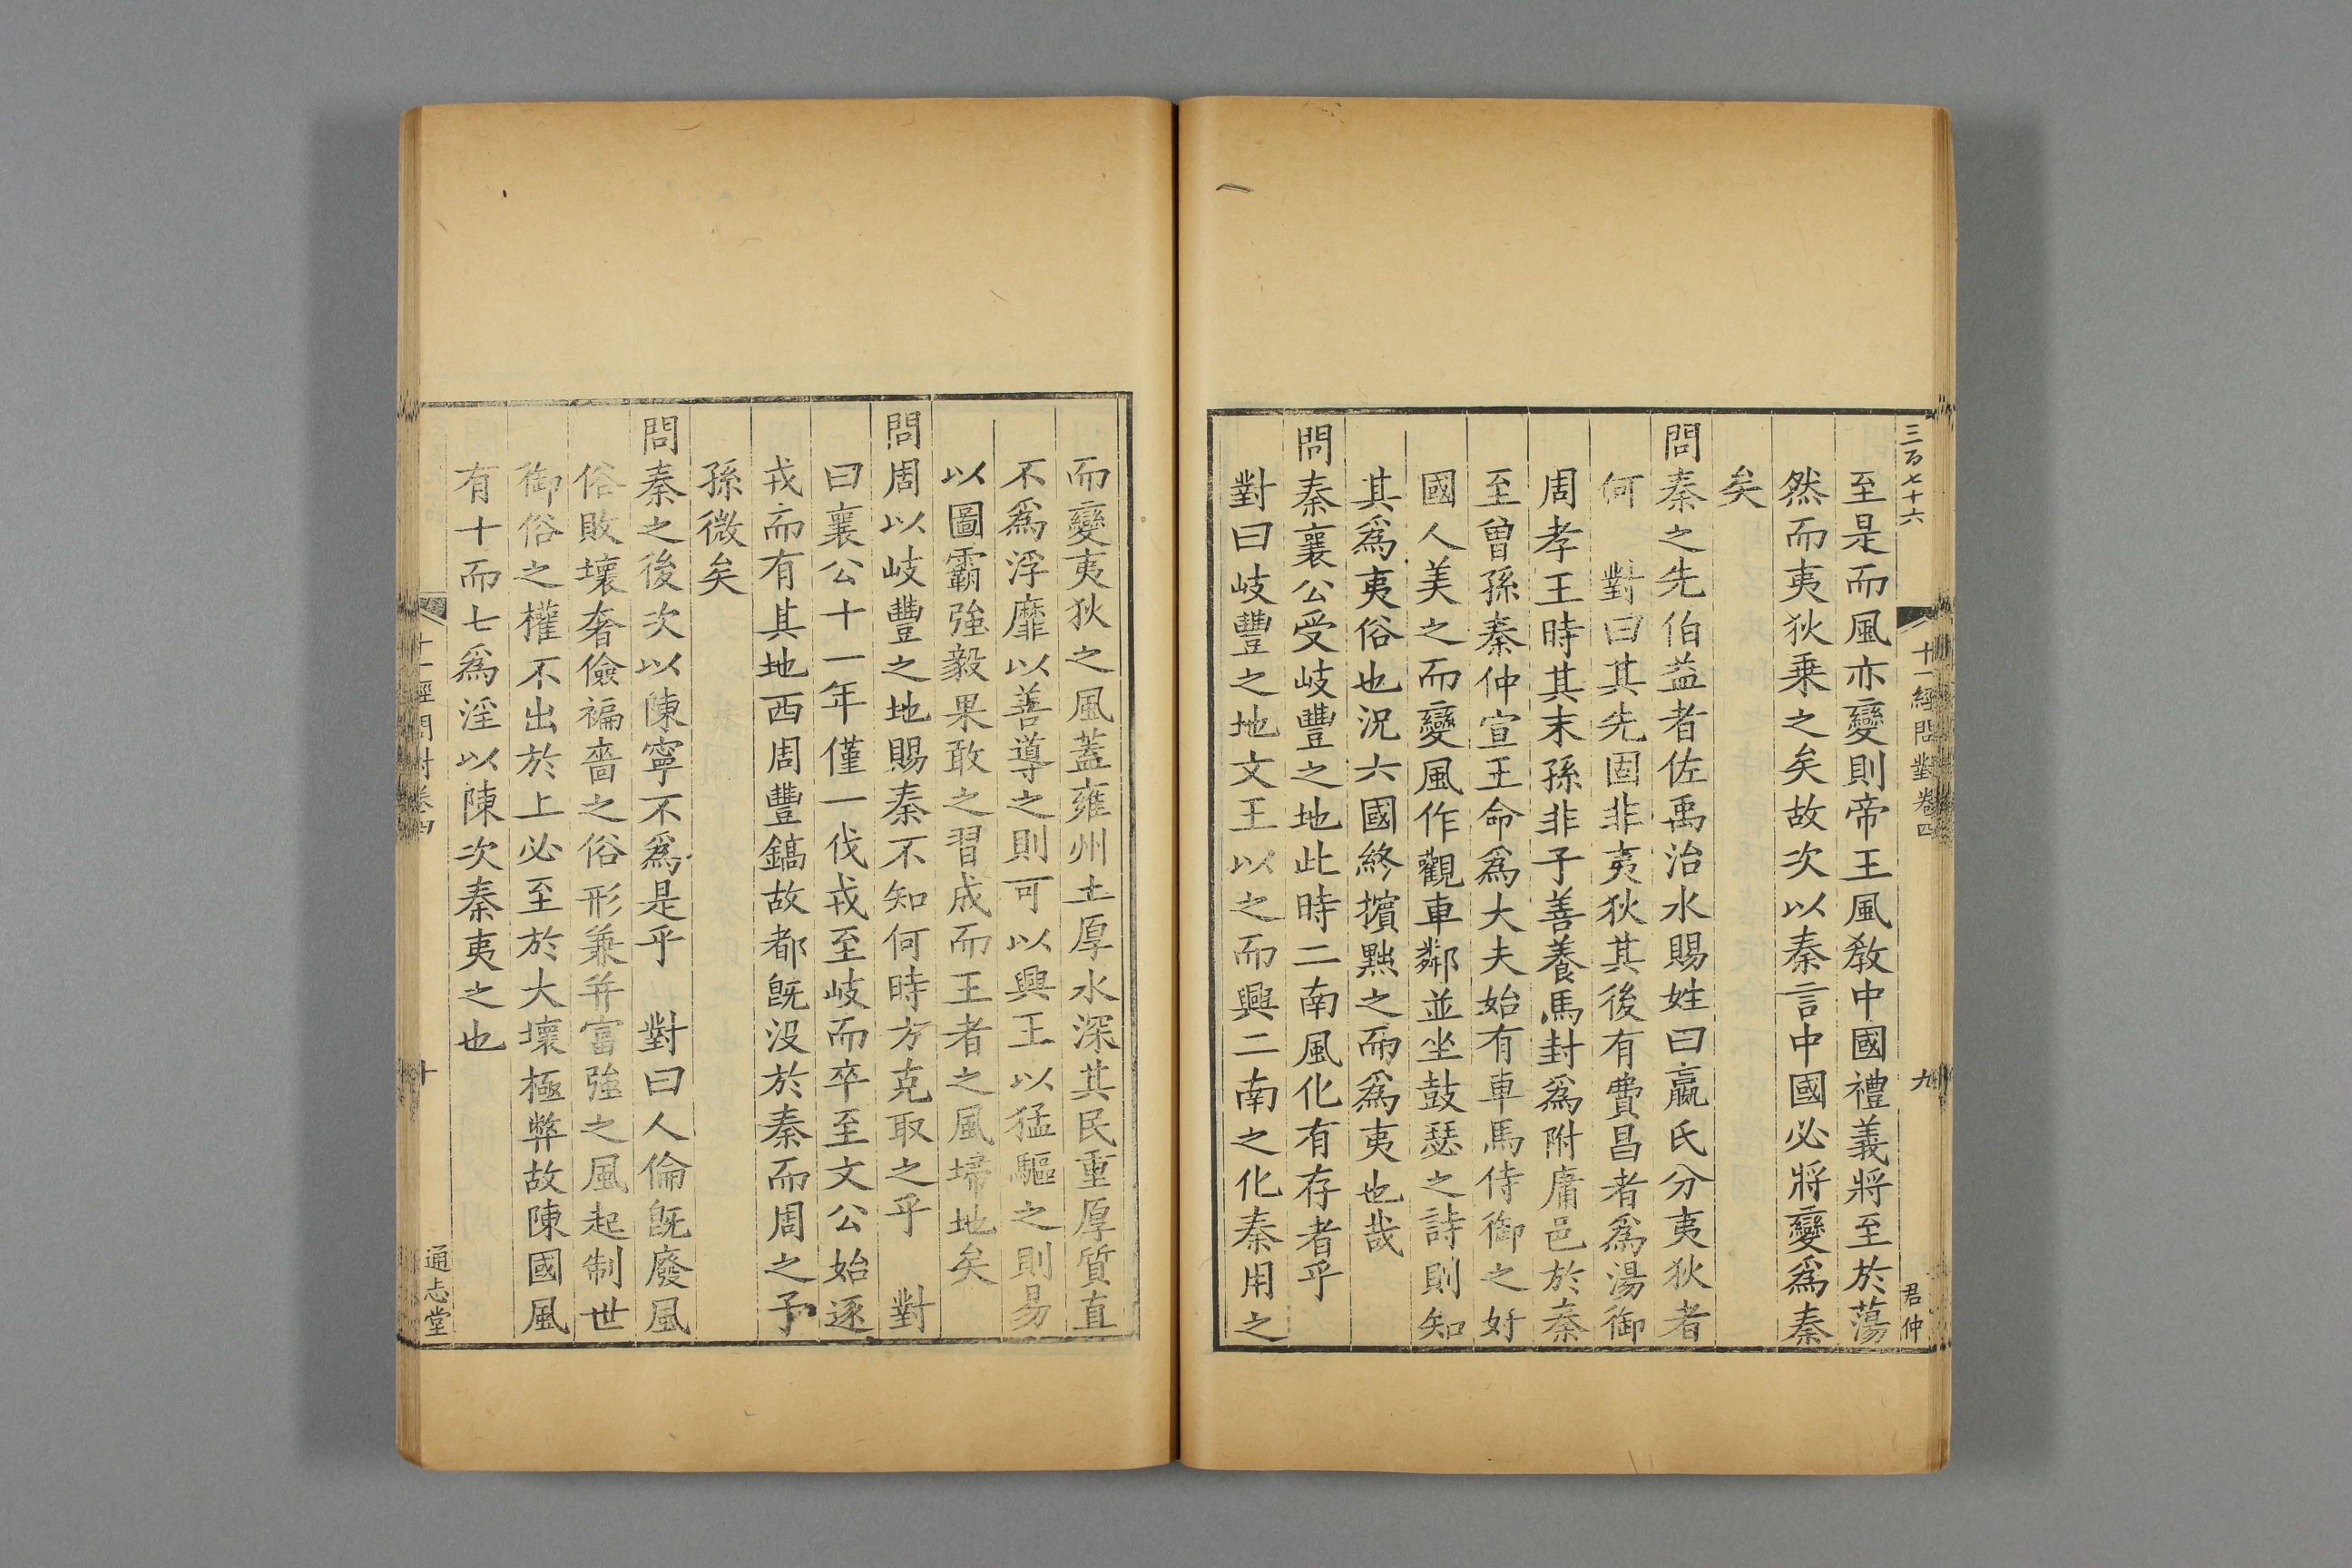 三百七十六
十一經問對卷四
九
君仲
至是而風亦變則帝王風敎中國禮義將至於蕩
然而夷狄乗之矣故次以秦言中國必將變爲秦
矣
問秦之先伯益者佐禹治水賜姓曰嬴氏分夷狄者
何　對曰其先固非夷狄其後有費昌者爲湯御
周孝王時其末孫非子善養馬封爲附庸邑於秦
至曾孫秦仲宣王命爲大夫始有車馬侍御之好
國人美之而變風作觀車鄰並坐鼓瑟之詩則知
其爲夷俗也況六國終擯㸃之而爲夷也哉
問秦襄公受岐豐之地此時二南風化有存者乎
對曰岐豐之地文王以之而興二南之化秦用之
而變夷狄之風蓋雍州土厚水深其民重厚質直
不爲浮靡以善導之則可以興王以猛驅之則易
以圖霸強毅果敢之習成而王者之風埽地矣
問周以岐豐之地賜秦不知何時方克取之乎　對
曰襄公十一年僅一伐戎至岐而卒至文公始逐
戎而有其地西周豐鎬故都既没於秦而周之子
孫微矣
問秦之後次以陳寧不爲是乎　對曰人倫既廢風
俗敗壞奢儉褊嗇之俗形兼并富強之風起制世
御俗之權不出於上必至於大壞極弊故陳國風
有十而七爲淫以陳次秦夷之也
十一經問對卷四
十
通志堂